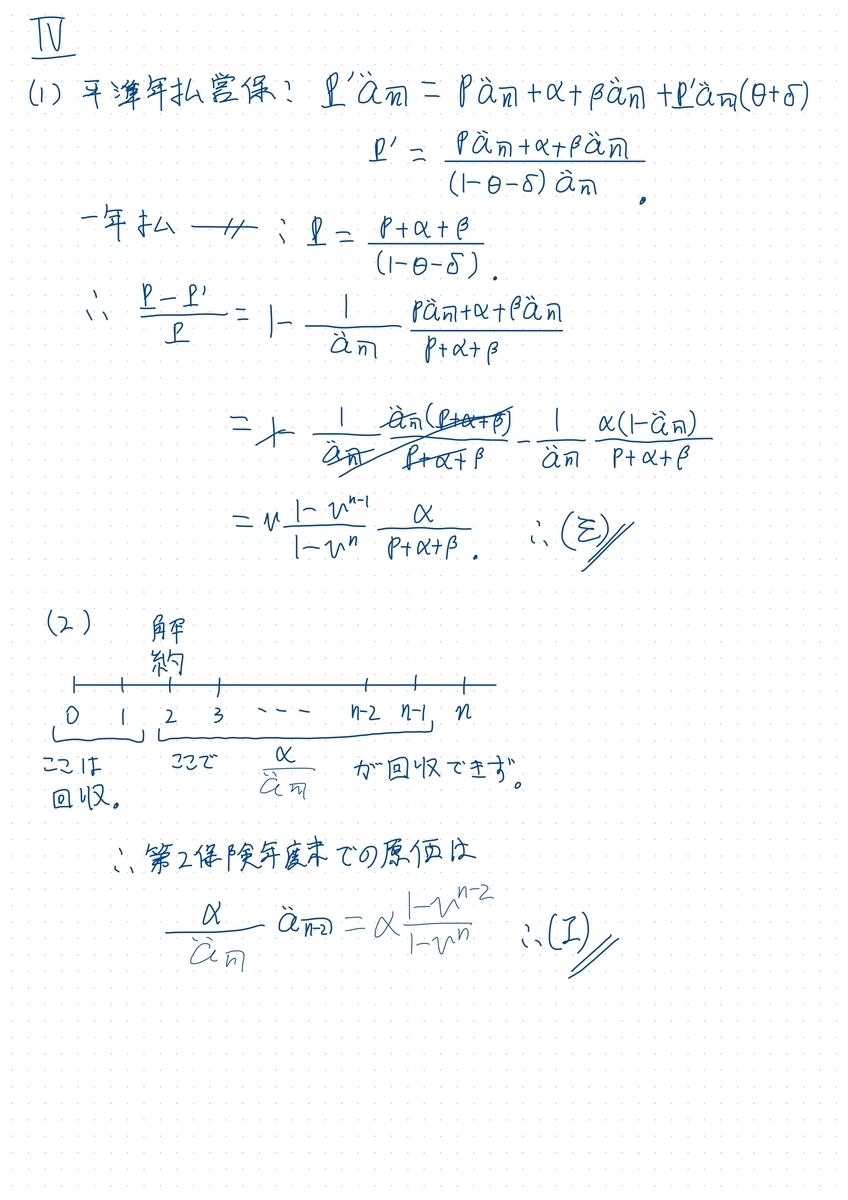 IV
(1) 平準年払営保: P'ä_n̅| = Pä_n̅| + α + βä_n̅| + P'ä_n̅|(θ+δ)
P' = (Pä_n̅| + α + βä_n̅|) / ((1-θ-δ) ä_n̅|) .
一年払 〃 : P = (P+α+β) / (1-θ-δ) .
∴ (P-P')/P = 1 - (1/ä_n̅|) (Pä_n̅|+α+βä_n̅|)/(P+α+β)
= 1 - (1/ä_n̅|) (ä_n̅|(P+α+β))/(P+α+β) - (1/ä_n̅|) (α(1-ä_n̅|))/(P+α+β)
= v (1-v^{n-1})/(1-v^n) α/(P+α+β) . ∴(E)
(2) 解約
0 1 2 3 --- n-2 n-1 n
ここは回収。 ここで α/ä_n̅| が回収できず。
∴ 第2保険年度末での原価は
(α/ä_n̅|) ä_n-2̅| = α (1-v^{n-2})/(1-v^n) ∴(I)